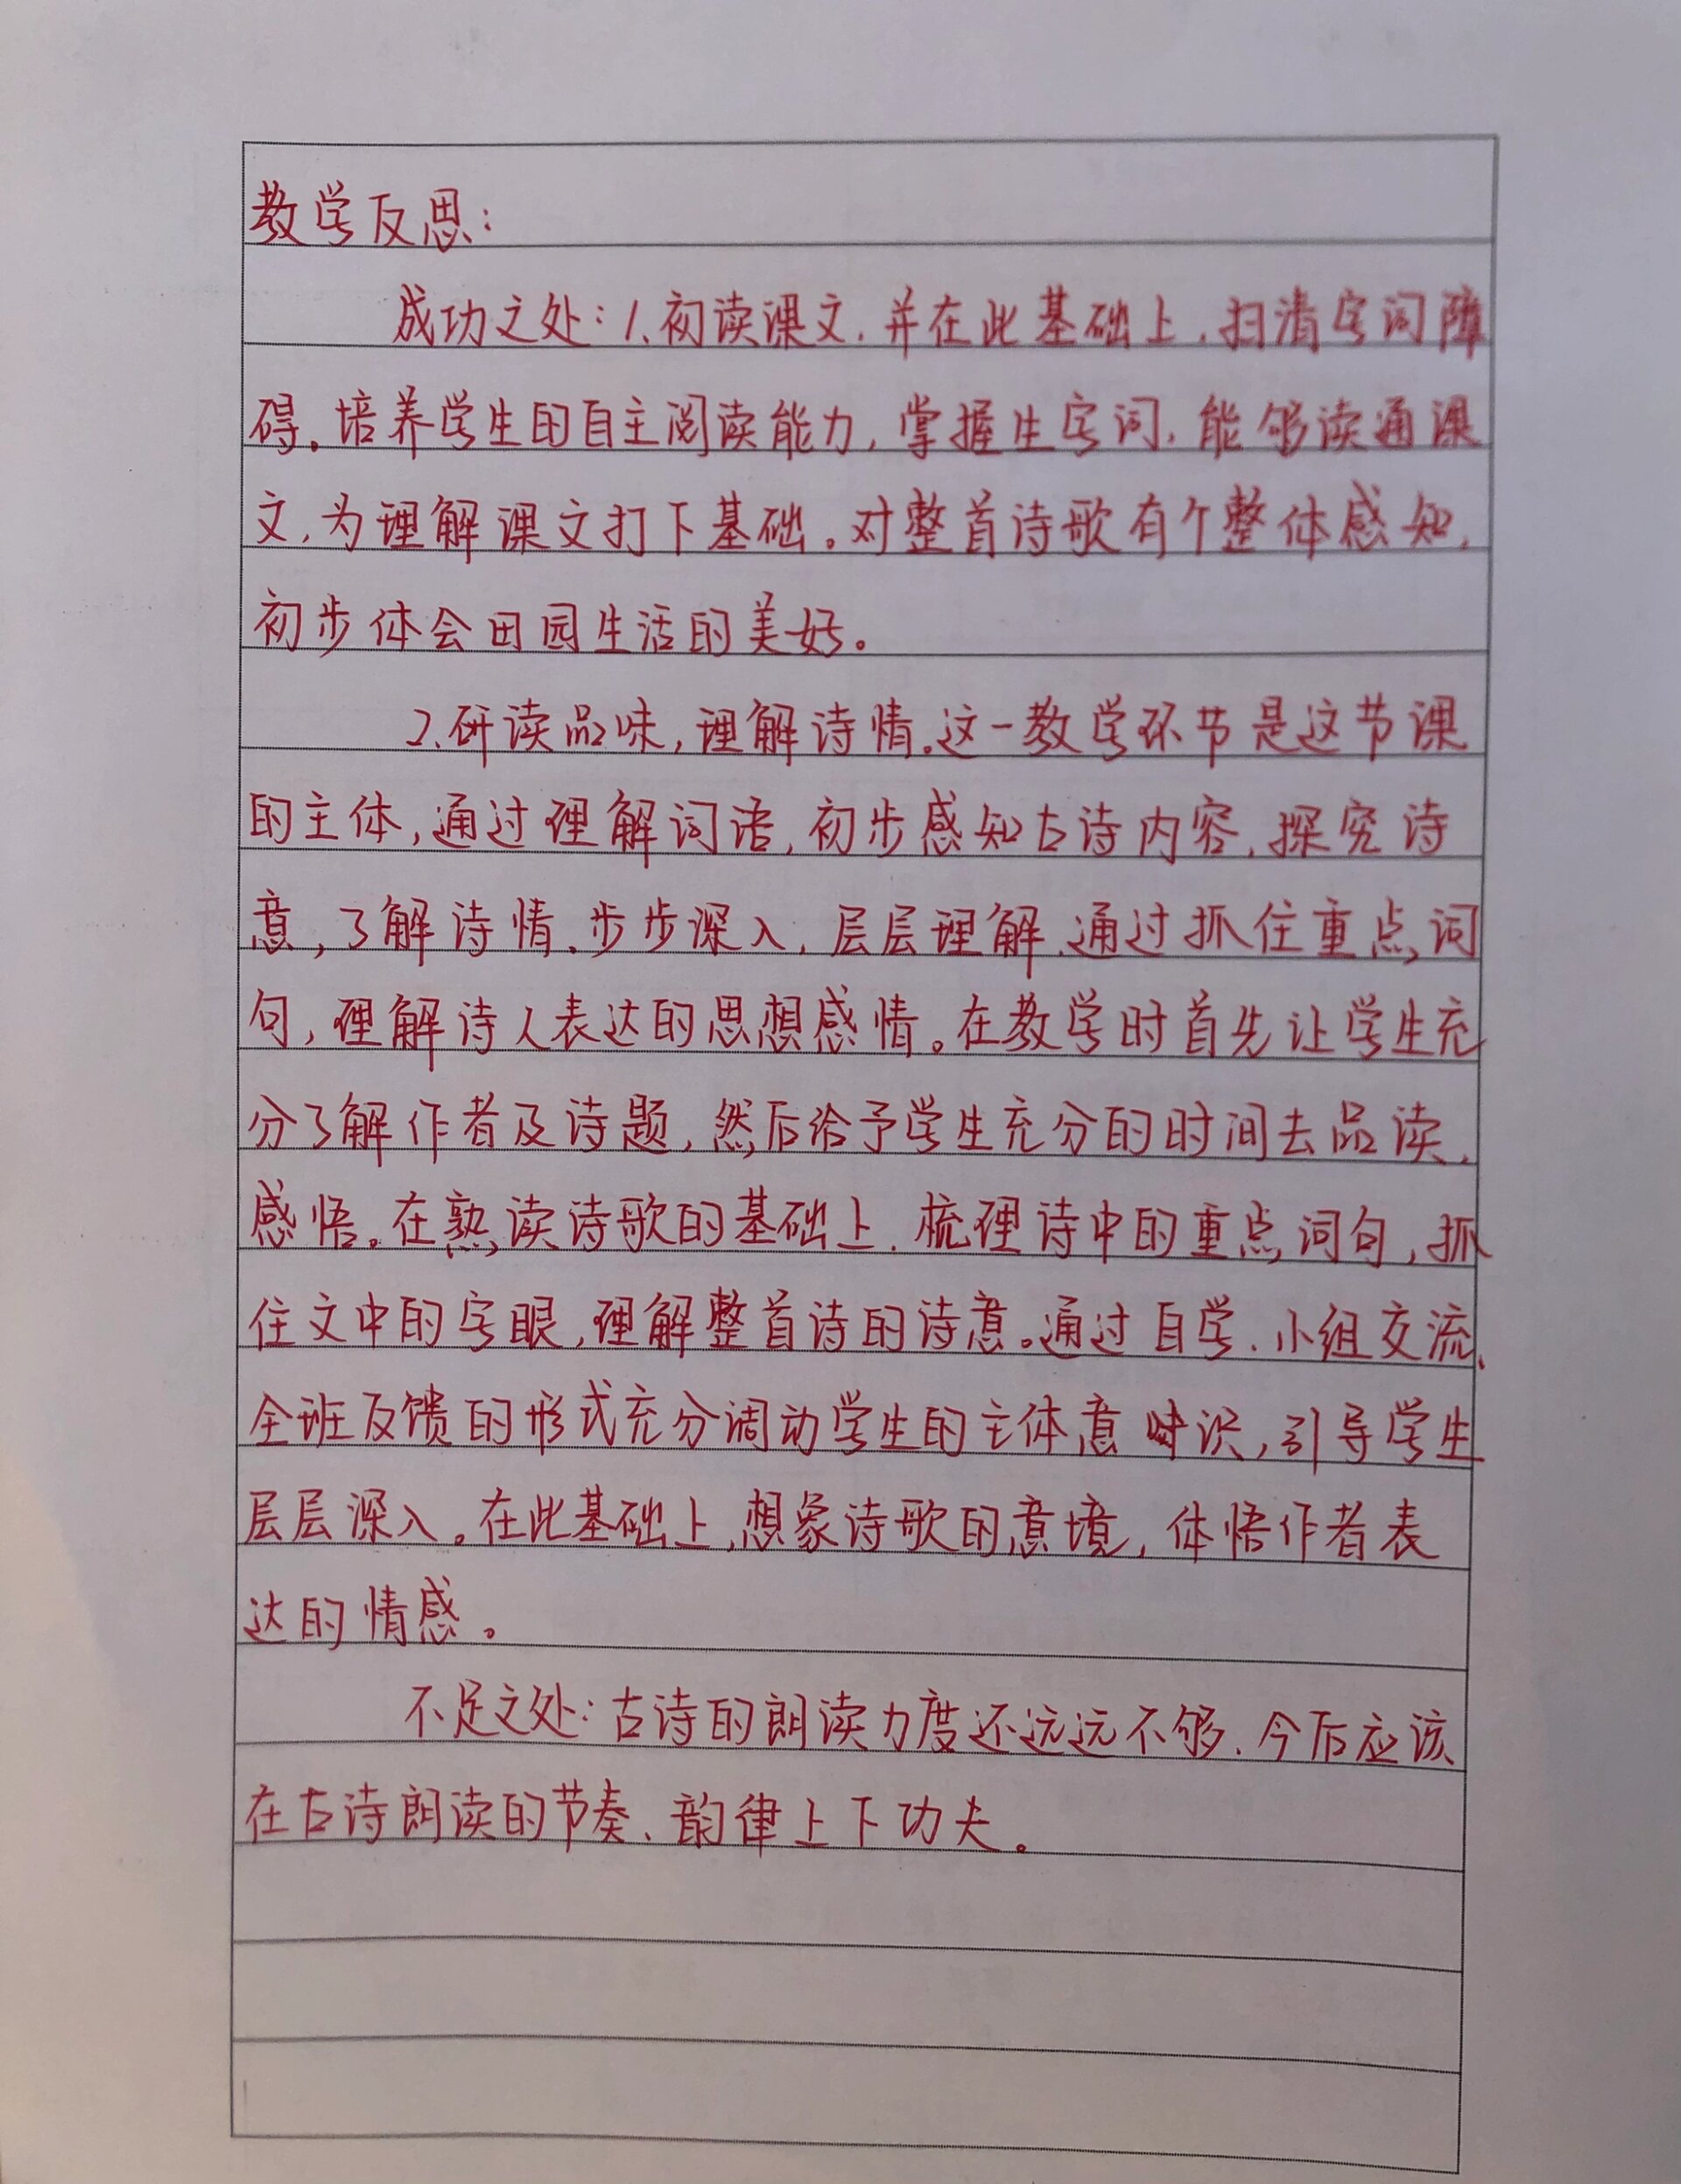 教学反思：
成功之处：1、初读课文，并在此基础上，扫清字词障
碍。培养学生的自主阅读能力，掌握生字词，能够读通课
文，为理解课文打下基础。对整首诗歌有个整体感知，
初步体会田园生活的美好。
2、研读品味，理解诗情。这一教学环节是这节课
的主体，通过理解词语，初步感知古诗内容，探究诗
意，了解诗情。步步深入，层层理解，通过抓住重点词
句，理解诗人表达的思想感情。在教学时首先让学生充
分了解作者及诗题，然后给予学生充分的时间去品读、
感悟。在熟读诗歌的基础上，梳理诗中的重点词句，抓
住文中的字眼，理解整首诗的诗意。通过自学、小组交流、
全班反馈的形式充分调动学生的主体意识，引导学生
层层深入。在此基础上，想象诗歌的意境，体悟作者表
达的情感。
不足之处：古诗的朗读力度还远远不够，今后应该
在古诗朗读的节奏、韵律上下功夫。